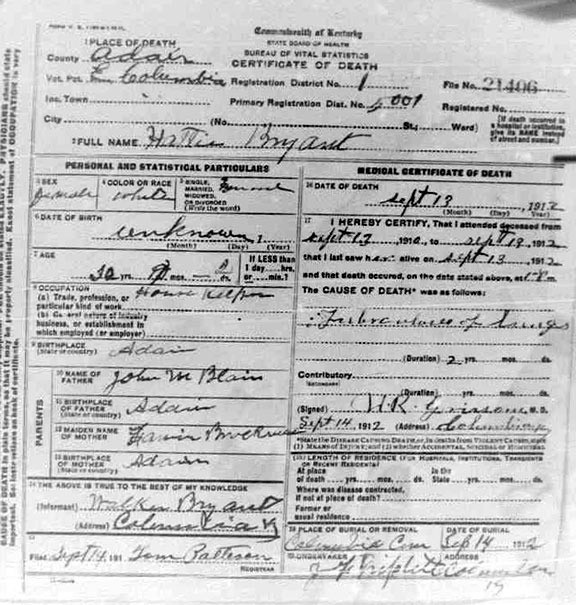 Commonwealth of Kentucky
STATE BOARD OF HEALTH
BUREAU OF VITAL STATISTICS
CERTIFICATE OF DEATH
1 PLACE OF DEATH
County Adair
Vot. Pct. E. Columbia Registration District No. 1 File No. 21406
Inc. Town Primary Registration Dist. No. 5001 Registered No.
City (No. St., Ward)
[If death occurred in a hospital or institution, give its NAME instead of street and number.]
2 FULL NAME Hattie Bryant
PERSONAL AND STATISTICAL PARTICULARS
3 SEX female
4 COLOR OR RACE white
5 SINGLE, MARRIED, WIDOWED, OR DIVORCED (Write the word)
6 DATE OF BIRTH
unknown, 1
(Month) (Day) (Year)
7 AGE
yrs. mos. ds.
If LESS than 1 day....hrs. or....min.?
8 OCCUPATION
(a) Trade, profession, or particular kind of work. House Keeper
(b) General nature of industry business, or establishment in which employed (or employer)
9 BIRTHPLACE
(State or country) Adair
PARENTS
10 NAME OF FATHER John M Blair
11 BIRTHPLACE OF FATHER (State or country) Adair
12 MAIDEN NAME OF MOTHER
13 BIRTHPLACE OF MOTHER (State or country) Adair
14 THE ABOVE IS TRUE TO THE BEST OF MY KNOWLEDGE
(Informant) Bryant
(Address) Columbia Ky
15
Filed Sept 14, 191 Tom Patteson
REGISTRAR
MEDICAL CERTIFICATE OF DEATH
16 DATE OF DEATH
Sept 13, 1912
(Month) (Day) (Year)
17 I HEREBY CERTIFY, That I attended deceased from
Sept 13, 1910, to Sept 13, 1912
that I last saw her alive on Sept 13, 1912
and that death occured, on the date stated above, at m.
The CAUSE OF DEATH* was as follows:
Tuberculosis of Lungs
(Duration) 2 yrs. mos. ds.
Contributory
(SECONDARY)
(Duration) yrs. mos. ds.
(Signed) U.K. M.D.
Sept 14, 1912 (Address) Columbia Ky
*State the DISEASE CAUSING DEATH, or, in deaths from VIOLENT CAUSES, state (1) MEANS OF INJURY; and (2) whether ACCIDENTAL, SUICIDAL or HOMICIDAL
18 LENGTH OF RESIDENCE (FOR HOSPITALS, INSTITUTIONS, TRANSIENTS OR RECENT RESIDENTS)
At place In the
of death yrs. mos. ds. State yrs. mos. ds.
Where was disease contracted,
if not at place of death?
Former or
usual residence
19 PLACE OF BURIAL OR REMOVAL DATE OF BURIAL
Columbia Cem Sept 14, 1912
20 UNDERTAKER ADDRESS
J F Triplett Columbia
Ky